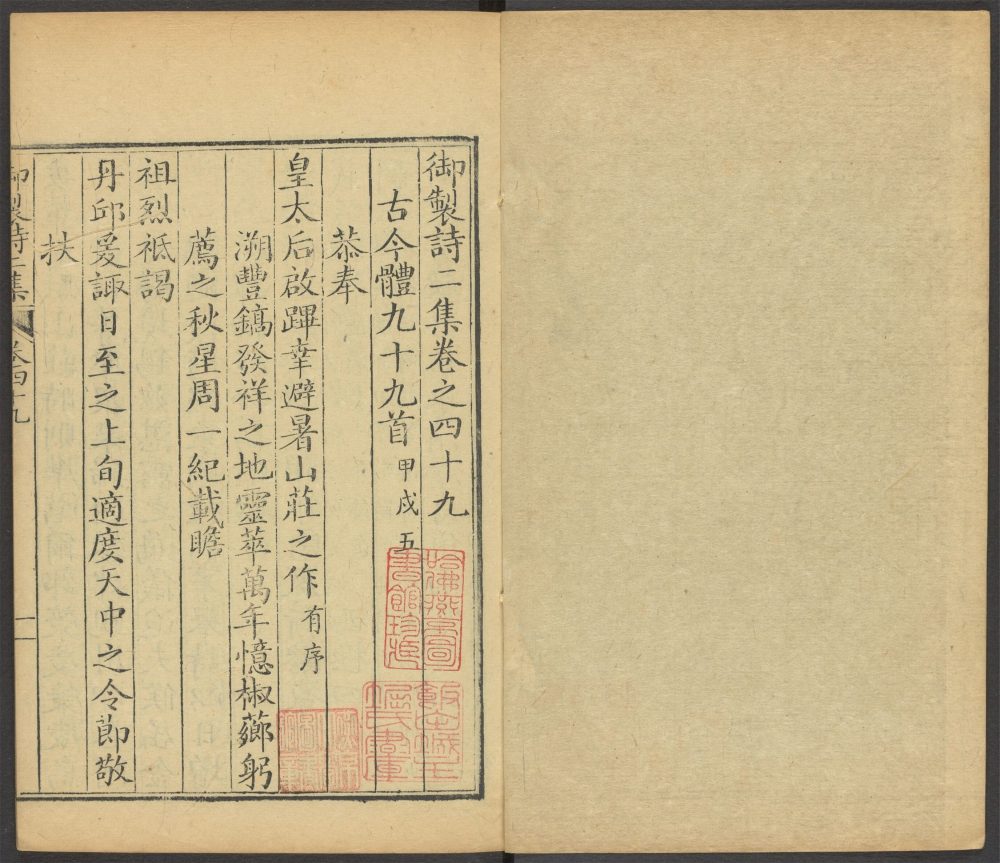 御製詩二集卷之四十九
古今體九十九首 甲戌五
恭奉
皇太后啟蹕幸避暑山莊之作 有序
溯豐鎬發祥之地靈萃萬年憶椒薌躬
薦之秋星周一紀載瞻
祖烈祗謁
丹邱爰諏日至之上旬適度天中之令節敬
扶
御製詩二集 卷四十九 一
哈佛燕京圖書館珍藏